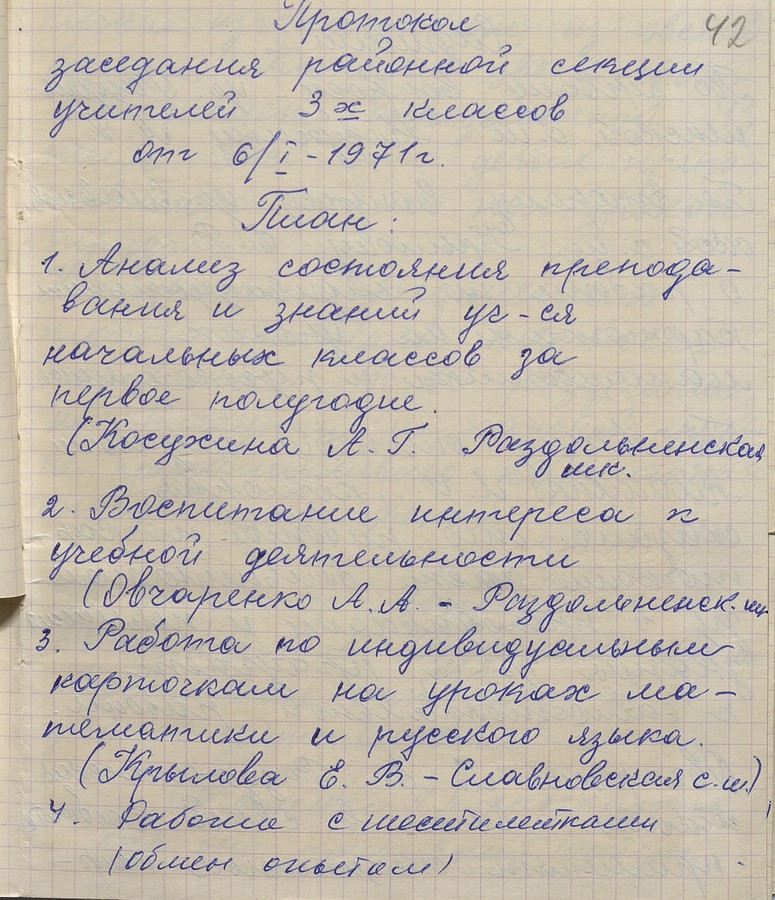 42
Протокол
заседания районной секции
учителей 3х классов
от 6/I-1971г.
План:
1. Анализ состояния препода-
вания и знаний уч-ся
начальных классов за
первое полугодие.
(Косухина А. Г. Раздольненская
шк.
2. Воспитание интереса к
учебной деятельности
(Овчаренко А. А. - Раздольненск. шк
3. Работа по индивидуальным
карточкам на уроках ма-
тематики и русского языка.
(Крылова Е. В. - Славновская с. ш.)
4. Работа с шестилетками
(обмен опытом)